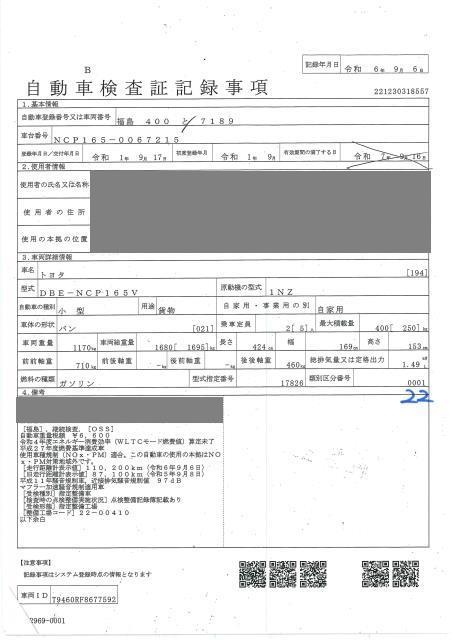 記録年月日 令和 6年 9月 6日
B
自動車検査証記録事項
221230318557
1.基本情報
自動車登録番号又は車両番号 福島 400 と 7189
車台番号 NCP165-0067215
登録年月日/交付年月日 令和 1年 9月 17日 初度登録年月 令和 1年 9月 有効期間の満了する日 令和 7年 9月 16日
2.使用者情報
使用者の氏名又は名称
使用者の住所
使用の本拠の位置
3.車両詳細情報
車名 トヨタ [194]
型式 DBE-NCP165V 原動機の型式 1NZ
自動車の種別 小型 用途 貨物 自家用・事業用の別 自家用
車体の形状 バン [021] 乗車定員 2[ 5]人 最大積載量 400[ 250]kg
車両重量 1170kg 車両総重量 1680[ 1695]kg 長さ 424cm 幅 169cm 高さ 153cm
前前軸重 710kg 前後軸重 -kg 後前軸重 -kg 後後軸重 460kg 総排気量又は定格出力 1.49L
燃料の種類 ガソリン 型式指定番号 17826 類別区分番号 0001
4.備考
22
[福島],継続検査,[OSS]
自動車重量税額 ¥6,600
令和4年度エネルギー消費効率(WLTCモード燃費値)算定未了
平成27年度燃費基準達成車
使用車種規制(NOx・PM)適合,この自動車の使用の本拠はNO
x・PM対策地域外です。
[走行距離計表示値]110,200km(令和6年9月6日)
[旧走行距離計表示値]87,100km(令和5年9月8日)
平成11年騒音規制車,近接排気騒音規制値 97dB
マフラー加速騒音規制適用車
[受検種別]指定整備車
[検査時の点検整備実施状況]点検整備記録簿記載あり
[受検形態]指定整備工場
[整備工場コード]22-00410
以下余白
【注意事項】
記録事項はシステム登録時点の情報となります
車両ID T9460RF8677592
2969-0001